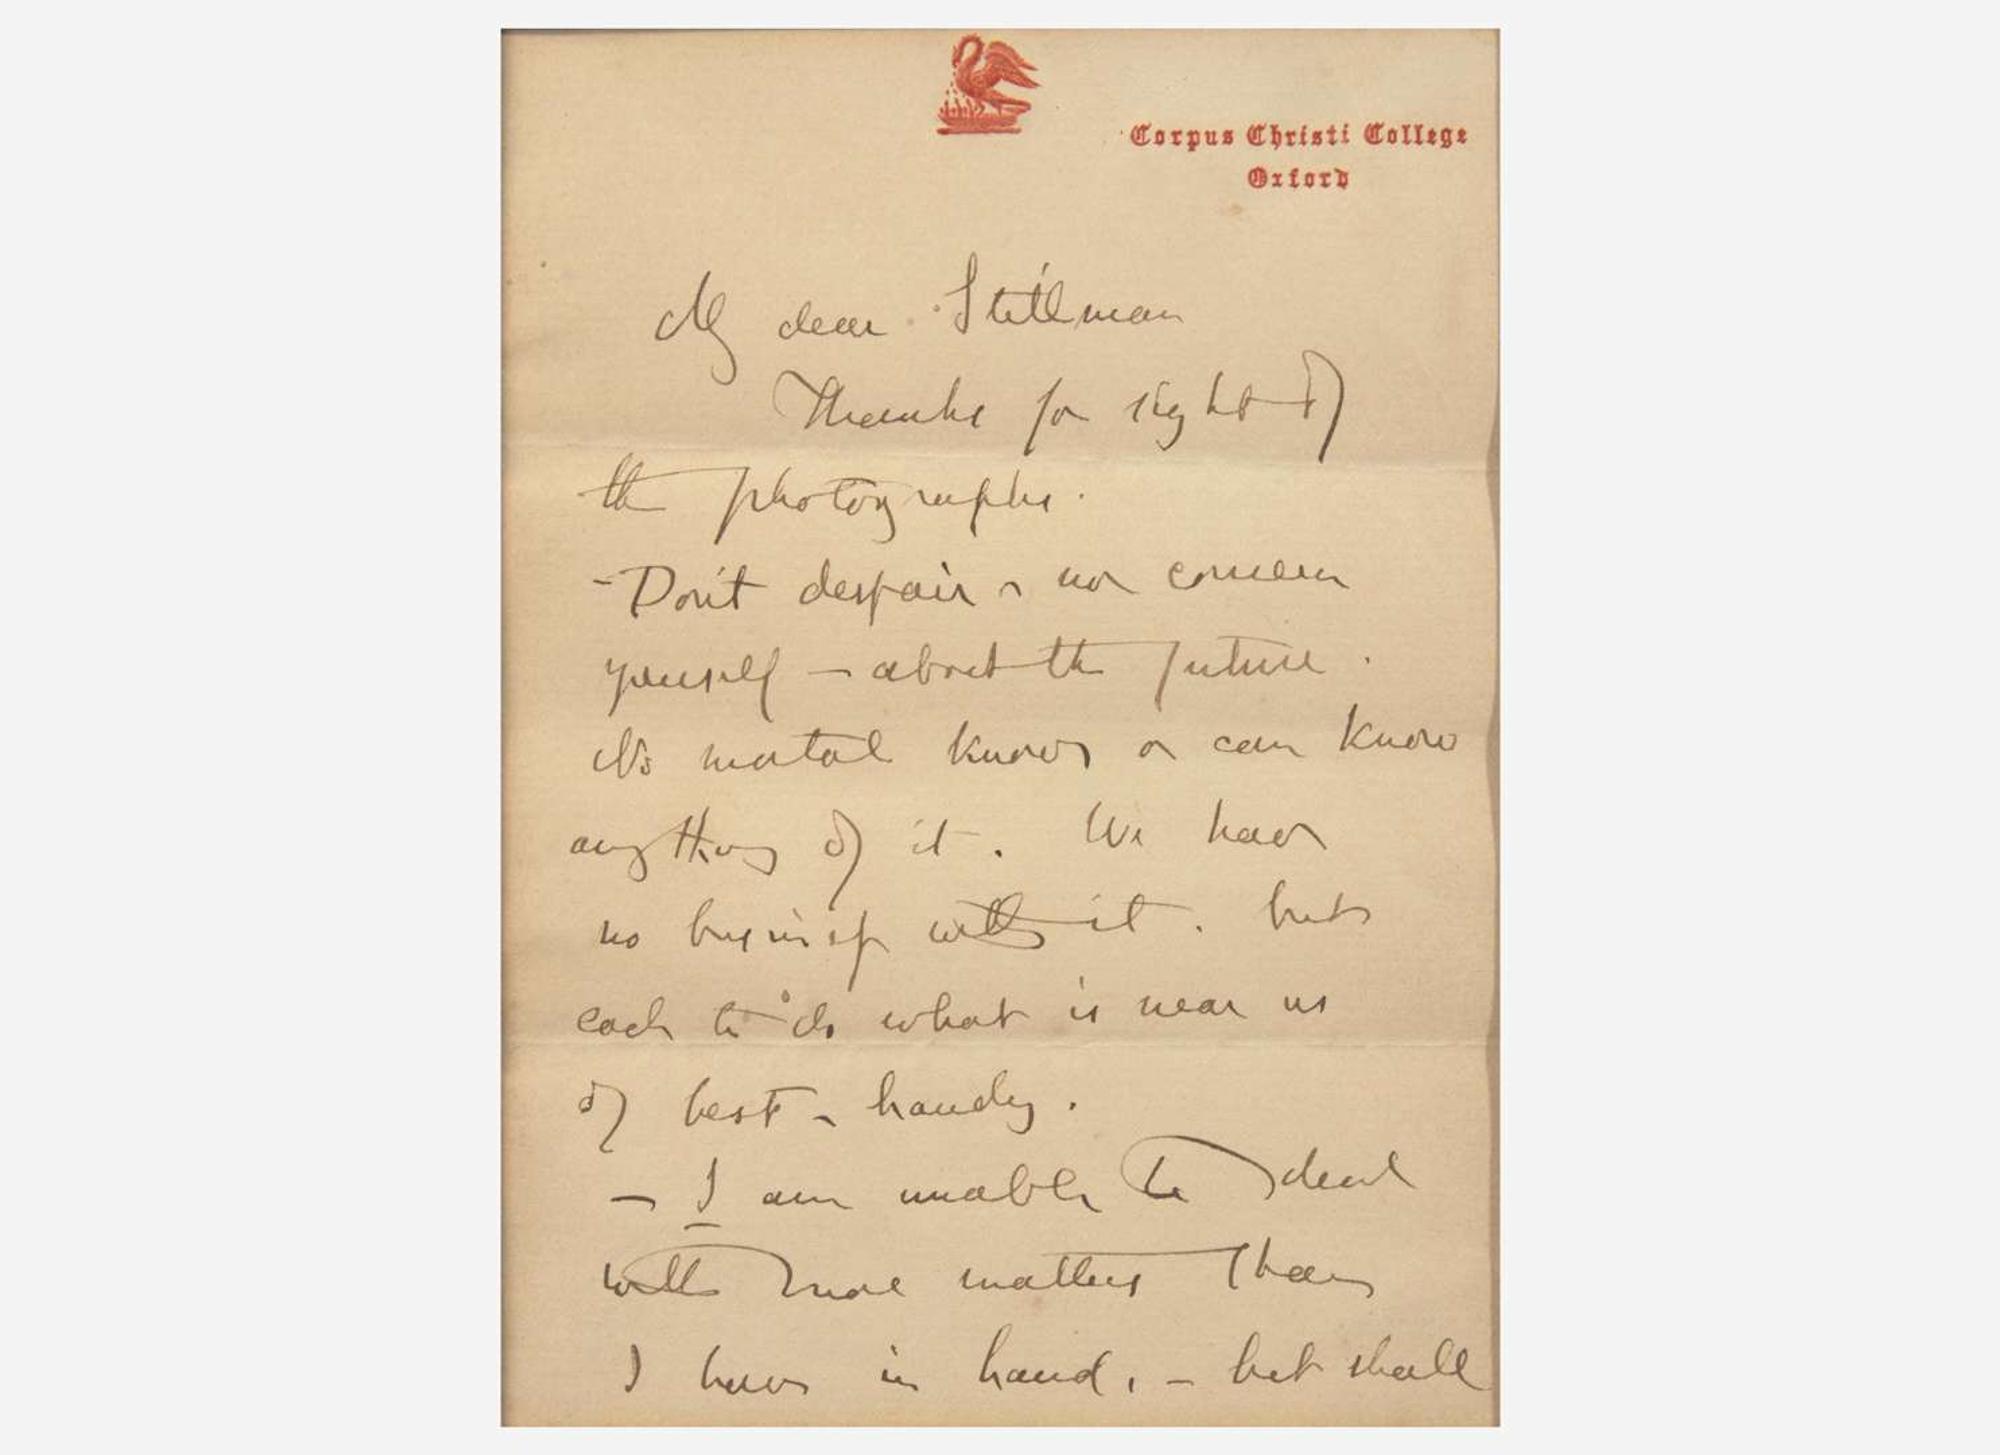 Corpus Christi College
Oxford
My dear Stillman
Thanks for sight of
the photographs.
- Don't despair - nor concern
yourself - about the future.
No mortal knows or can know
anything of it. We have
no business with it. but
each to do what is near us
of best - handy.
- I am unable to deal
with more matters than
I have in hand, - but shall